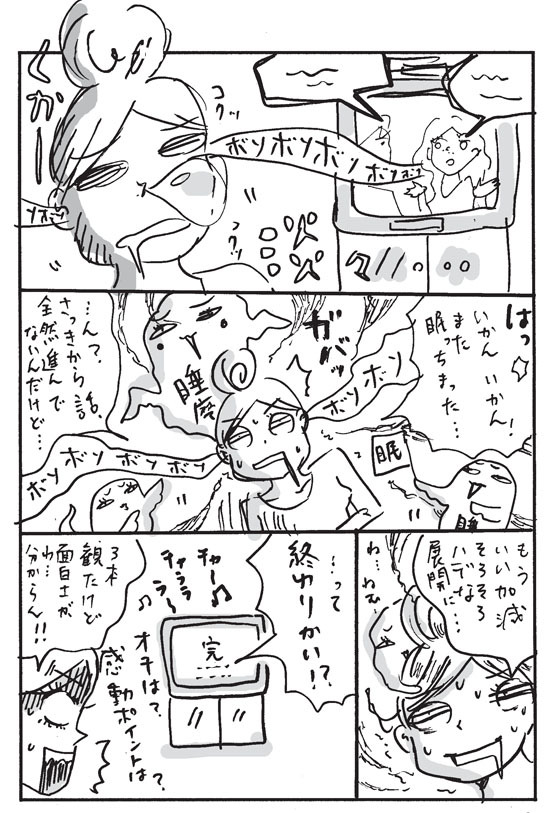 くかー
コクッ
ボソボソボソボソボソ
コクッ
はっ
いかんいかん!
また
眠っちまった…
ガバッ
睡魔
ボソボソ
眠
睡
…ん?
さっきから話、
全然進んで
ないんだけど…
ボソボソボソボソ
もう
いい加減
そろそろ
ハデな
展開に…
ね…ねむ
…って
終わりかい!?
チャー
チャラララ〜♪
完
オチは?
感動ポイントは?
3本
観たけど
面白さが
わ…
分からん!!